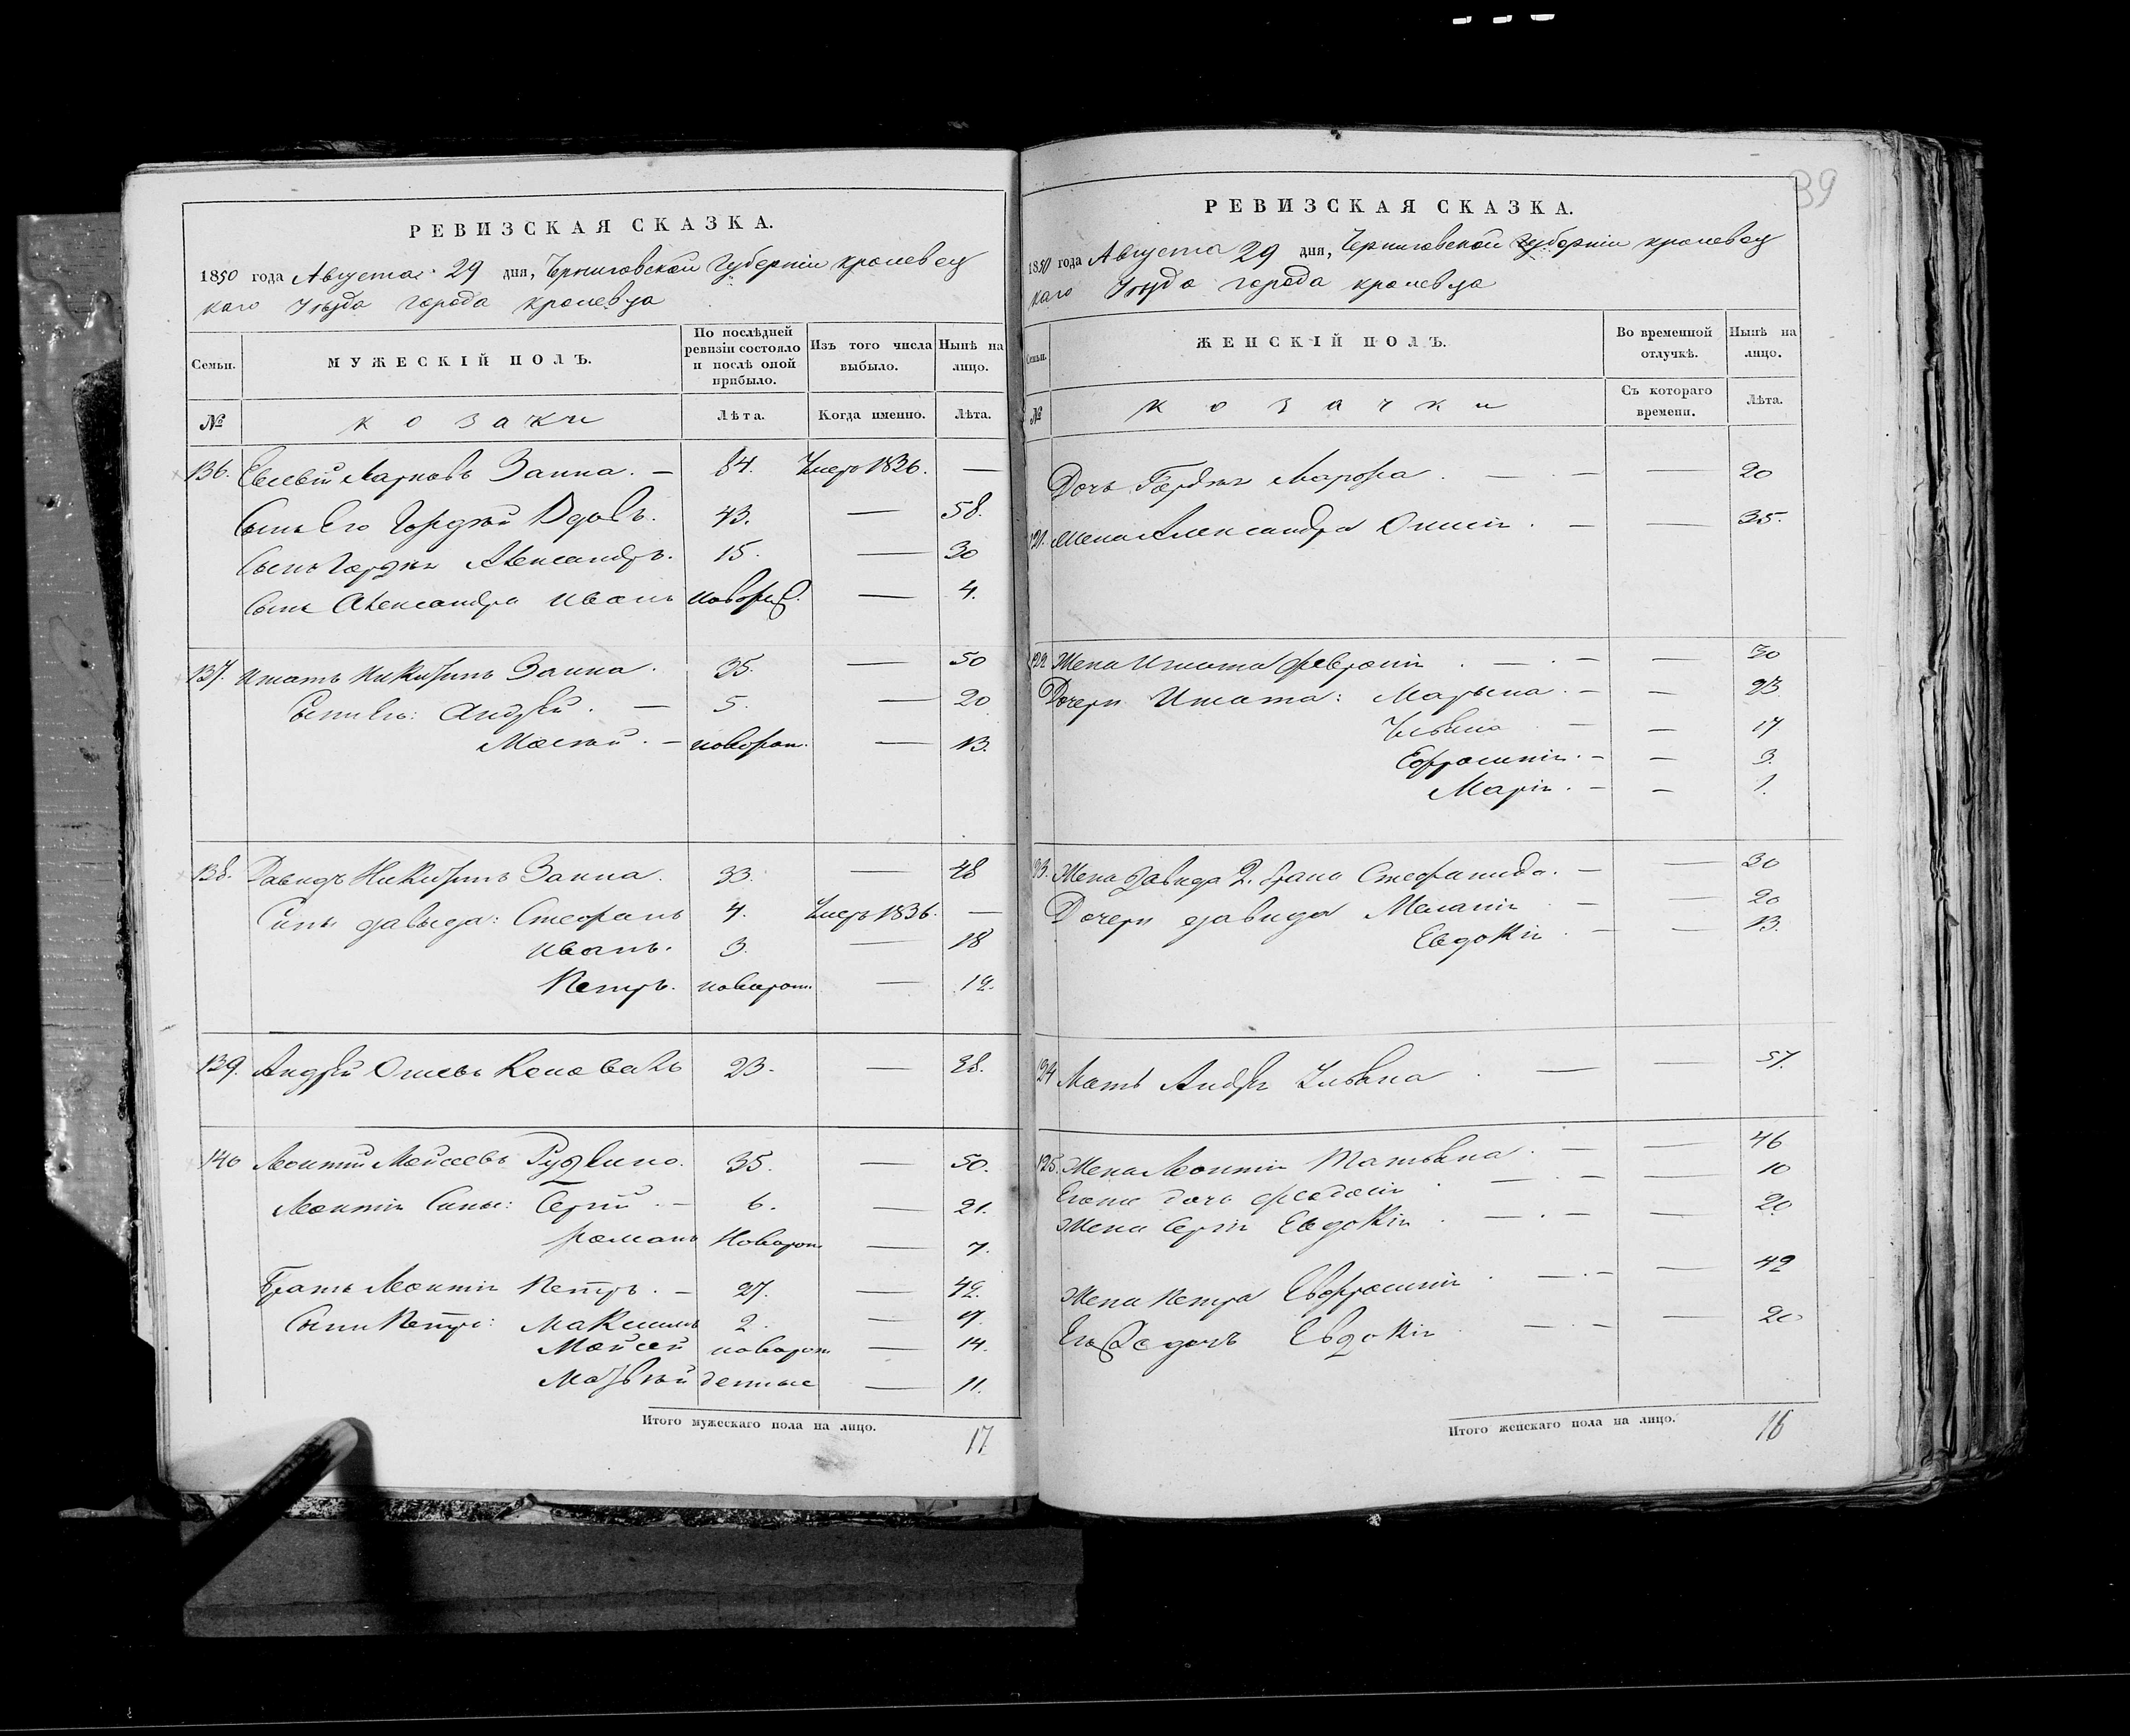 РЕВИЗСКАЯ СКАЗКА.
1850 года Августа 29 дня, Черниговской Губерніи кролевец
каго Уѣзда города кролевца
Семьи.
МУЖЕСКІЙ ПОЛЪ.
По послѣдней ревизіи состояло и послѣ оной прибыло.
Изъ того числа выбыло.
Нынѣ на лицо.
№
козаки
Лѣта.
Когда именно.
Лѣта.
136. Марковъ Заика. — 84. Умеръ 1826. —
Сынъ Его Гордѣй Вдовъ. 43. — 58.
Сынъ Гордѣя Александръ. 15. — 30
Сынъ Александра Иванъ — 4.
137. Игнатъ Никитинъ Заика. 35. — 50
Сыны Его: Андрей. — 5. — 20
— новорож. — 13.
138. Давидъ Никитинъ Заика. 33. — 48
Сины давыда: Стефанъ 4. Умеръ 1836. —
Иванъ. 3. — 18
Петръ. новорож. — 12.
139. Андрей 23. — 38.
140 Леонтій Мойсеевъ 35. — 50.
Леонтія Сины: Сергій. — 6. — 21.
Романъ Новорож — 7.
Братъ Леонтія Петръ. — 27. — 42.
Сыны Петра: Максимъ 2. — 17.
Мойсей новорож — 14.
Матвѣй денные — 11.
Итого мужескаго пола на лицо.
17
39
РЕВИЗСКАЯ СКАЗКА.
1850 года Августа 29 дня, Черниговской Губерніи кролевец
каго Уѣзда города кролевца
Семьи.
ЖЕНСКІЙ ПОЛЪ.
Во временной отлучкѣ.
Нынѣ на лицо.
№
козачки
Съ котораго времени.
Лѣта.
Дочь Гордѣя Марфа. — — — 20
121. Жена Александра — — 35.
122 Жена Игната Февронія. — — — 30
Дочери Игната: Марьяна. — — 23
Ульяна — — 17
Ефросинія. — — 3.
Марія. — — 1.
Жена Давида 2. брака Стефанида. — — 30
Дочери давида Меланія — — 20
Евдокія. — — 13.
Мать Андрея Ульяна. — — 57.
125. Жена Леонтія Татьяна. — — 46
Егоже дочь феодосія — — — 10
Жена Сергія Евдокія. — — — 20
Жена Петра Евфросинія. — — — 42
дочь Евдокія. — — — 20
Итого женскаго пола на лицо.
16